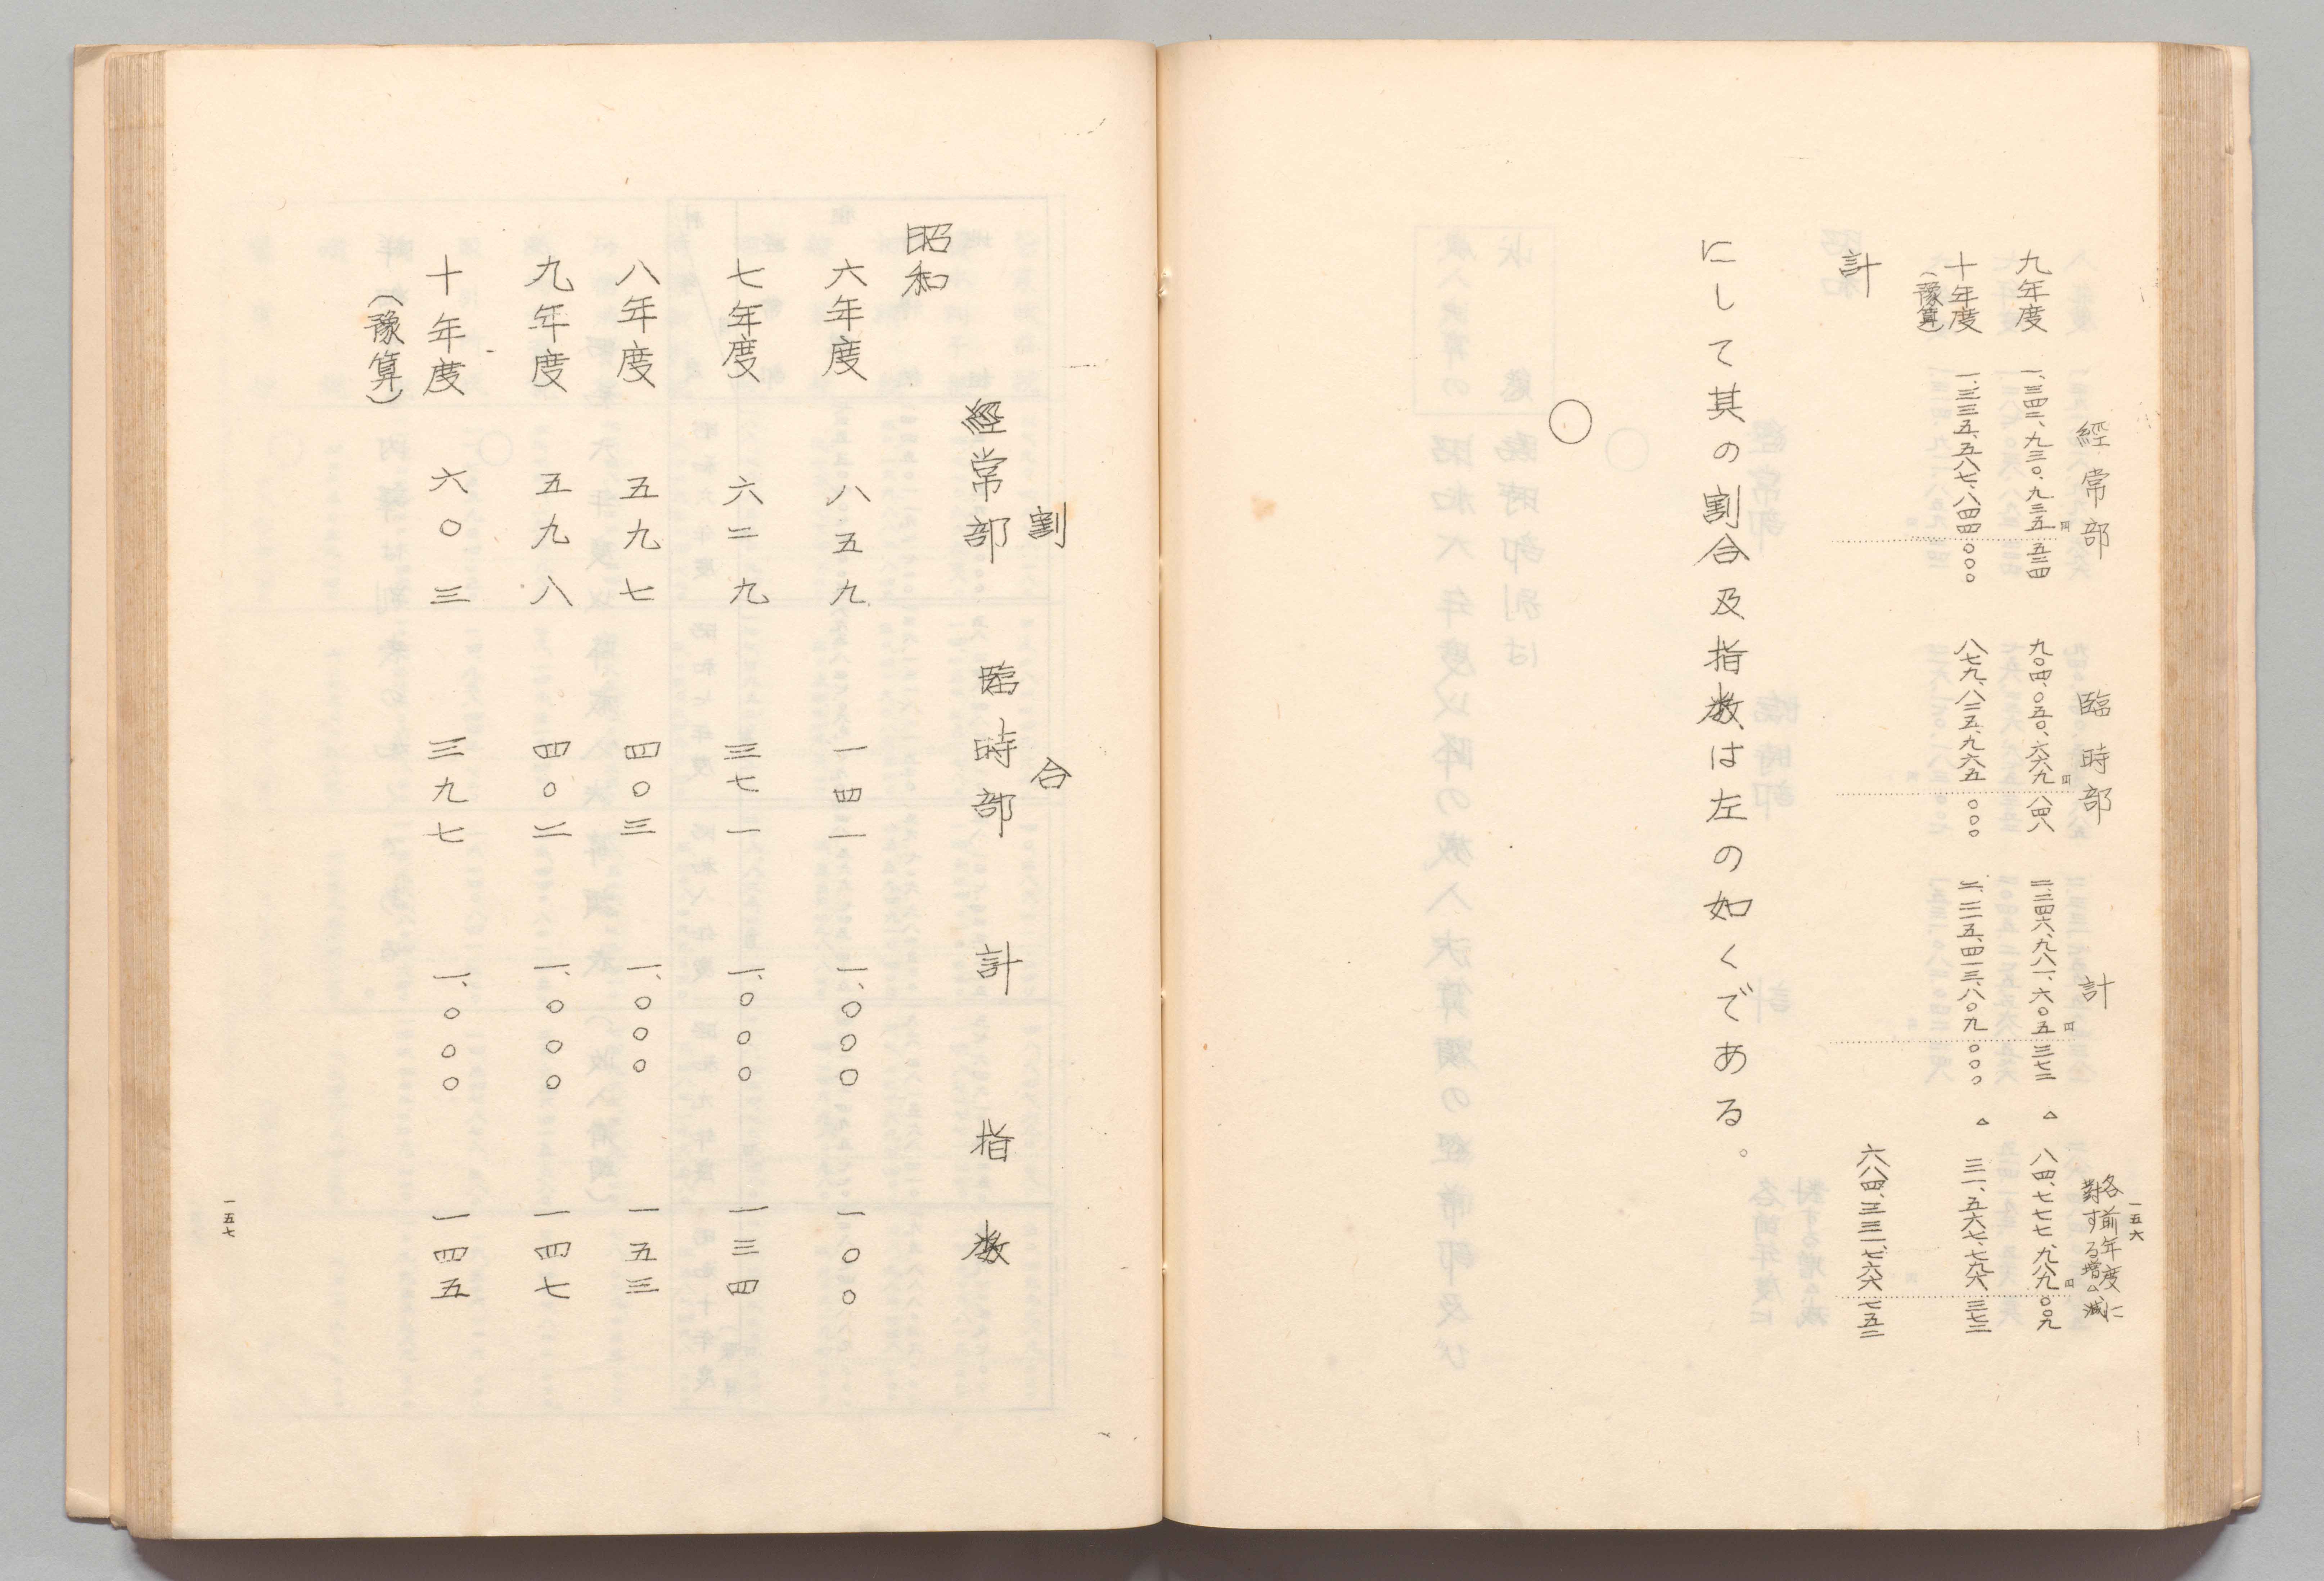 一五六
經常部　臨時部　計　各前年度に對する増△減
九年度　一、三四二、九三〇、九三五円五二四　九〇四、〇五〇、六六九円八四八　二、二四六、九八一、六〇五円三七二　△八四、七七七、九八九円〇〇九
十年度（豫算）　一、三三五、五八七、八四四〇〇〇　八七九、八二五、九六五〇〇〇　二、二一五、四一三、八〇九〇〇〇　△三一、五六七、七九六三七二
計　六八四、三三一、七六六七五二
にして其の割合及指数は左の如くである。
○
割合
經常部　臨時部　計　指数
昭和
六年度　八五九　一四一　一、〇〇〇　一〇〇
七年度　六二九　三七一　一、〇〇〇　一三四
八年度　五九七　四〇三　一、〇〇〇　一五三
九年度　五九八　四〇二　一、〇〇〇　一四七
十年度　六〇三　三九七　一、〇〇〇　一四五
（豫算）
一五七